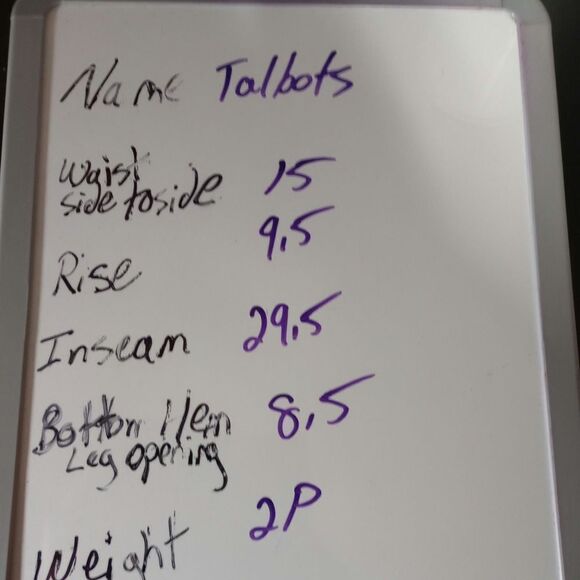 Name Talbots
Waist
side to side 15
Rise 9.5
Inseam 29.5
Bottom Hem 8.5
Leg opening
Weight 2P